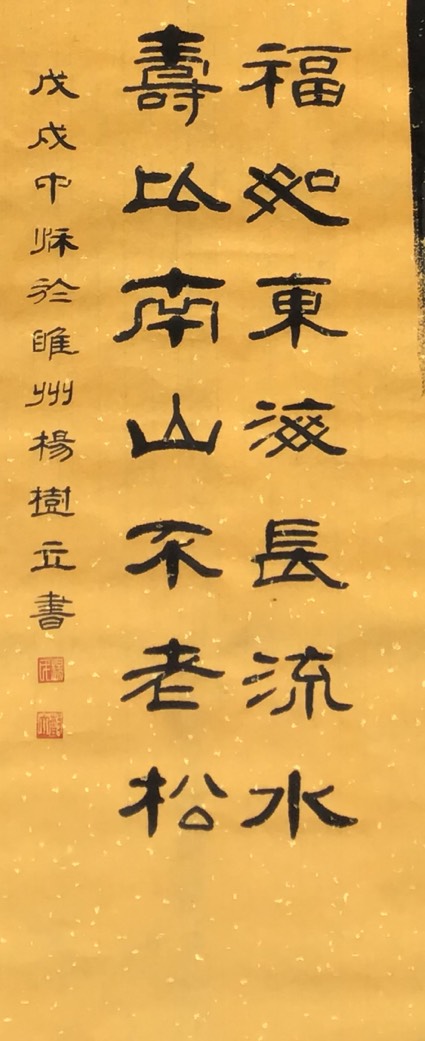 福如東海長流水
壽以南山不老松
戊戌中秌於睢州楊樹立書